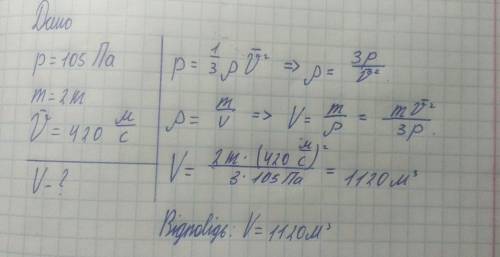 Дано
p = 105 Па
m = 2т
V̄ = 420 м/с
V - ?
p = 1/3 ρ V̄² => ρ = 3p/V̄².
ρ = m/v => V = m/ρ = mV̄²/3p.
V = 2т · (420 м/с)²/3 · 105 Па = 1120 м³
Відповідь: V = 1120 м³